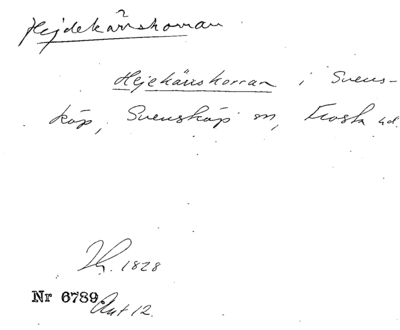 Hejdekärrshorran
Hejekärrshorran i Svens-
köp, Svensköp sn, Frosta hd.
1828
Nr 6789.
Akt 12.